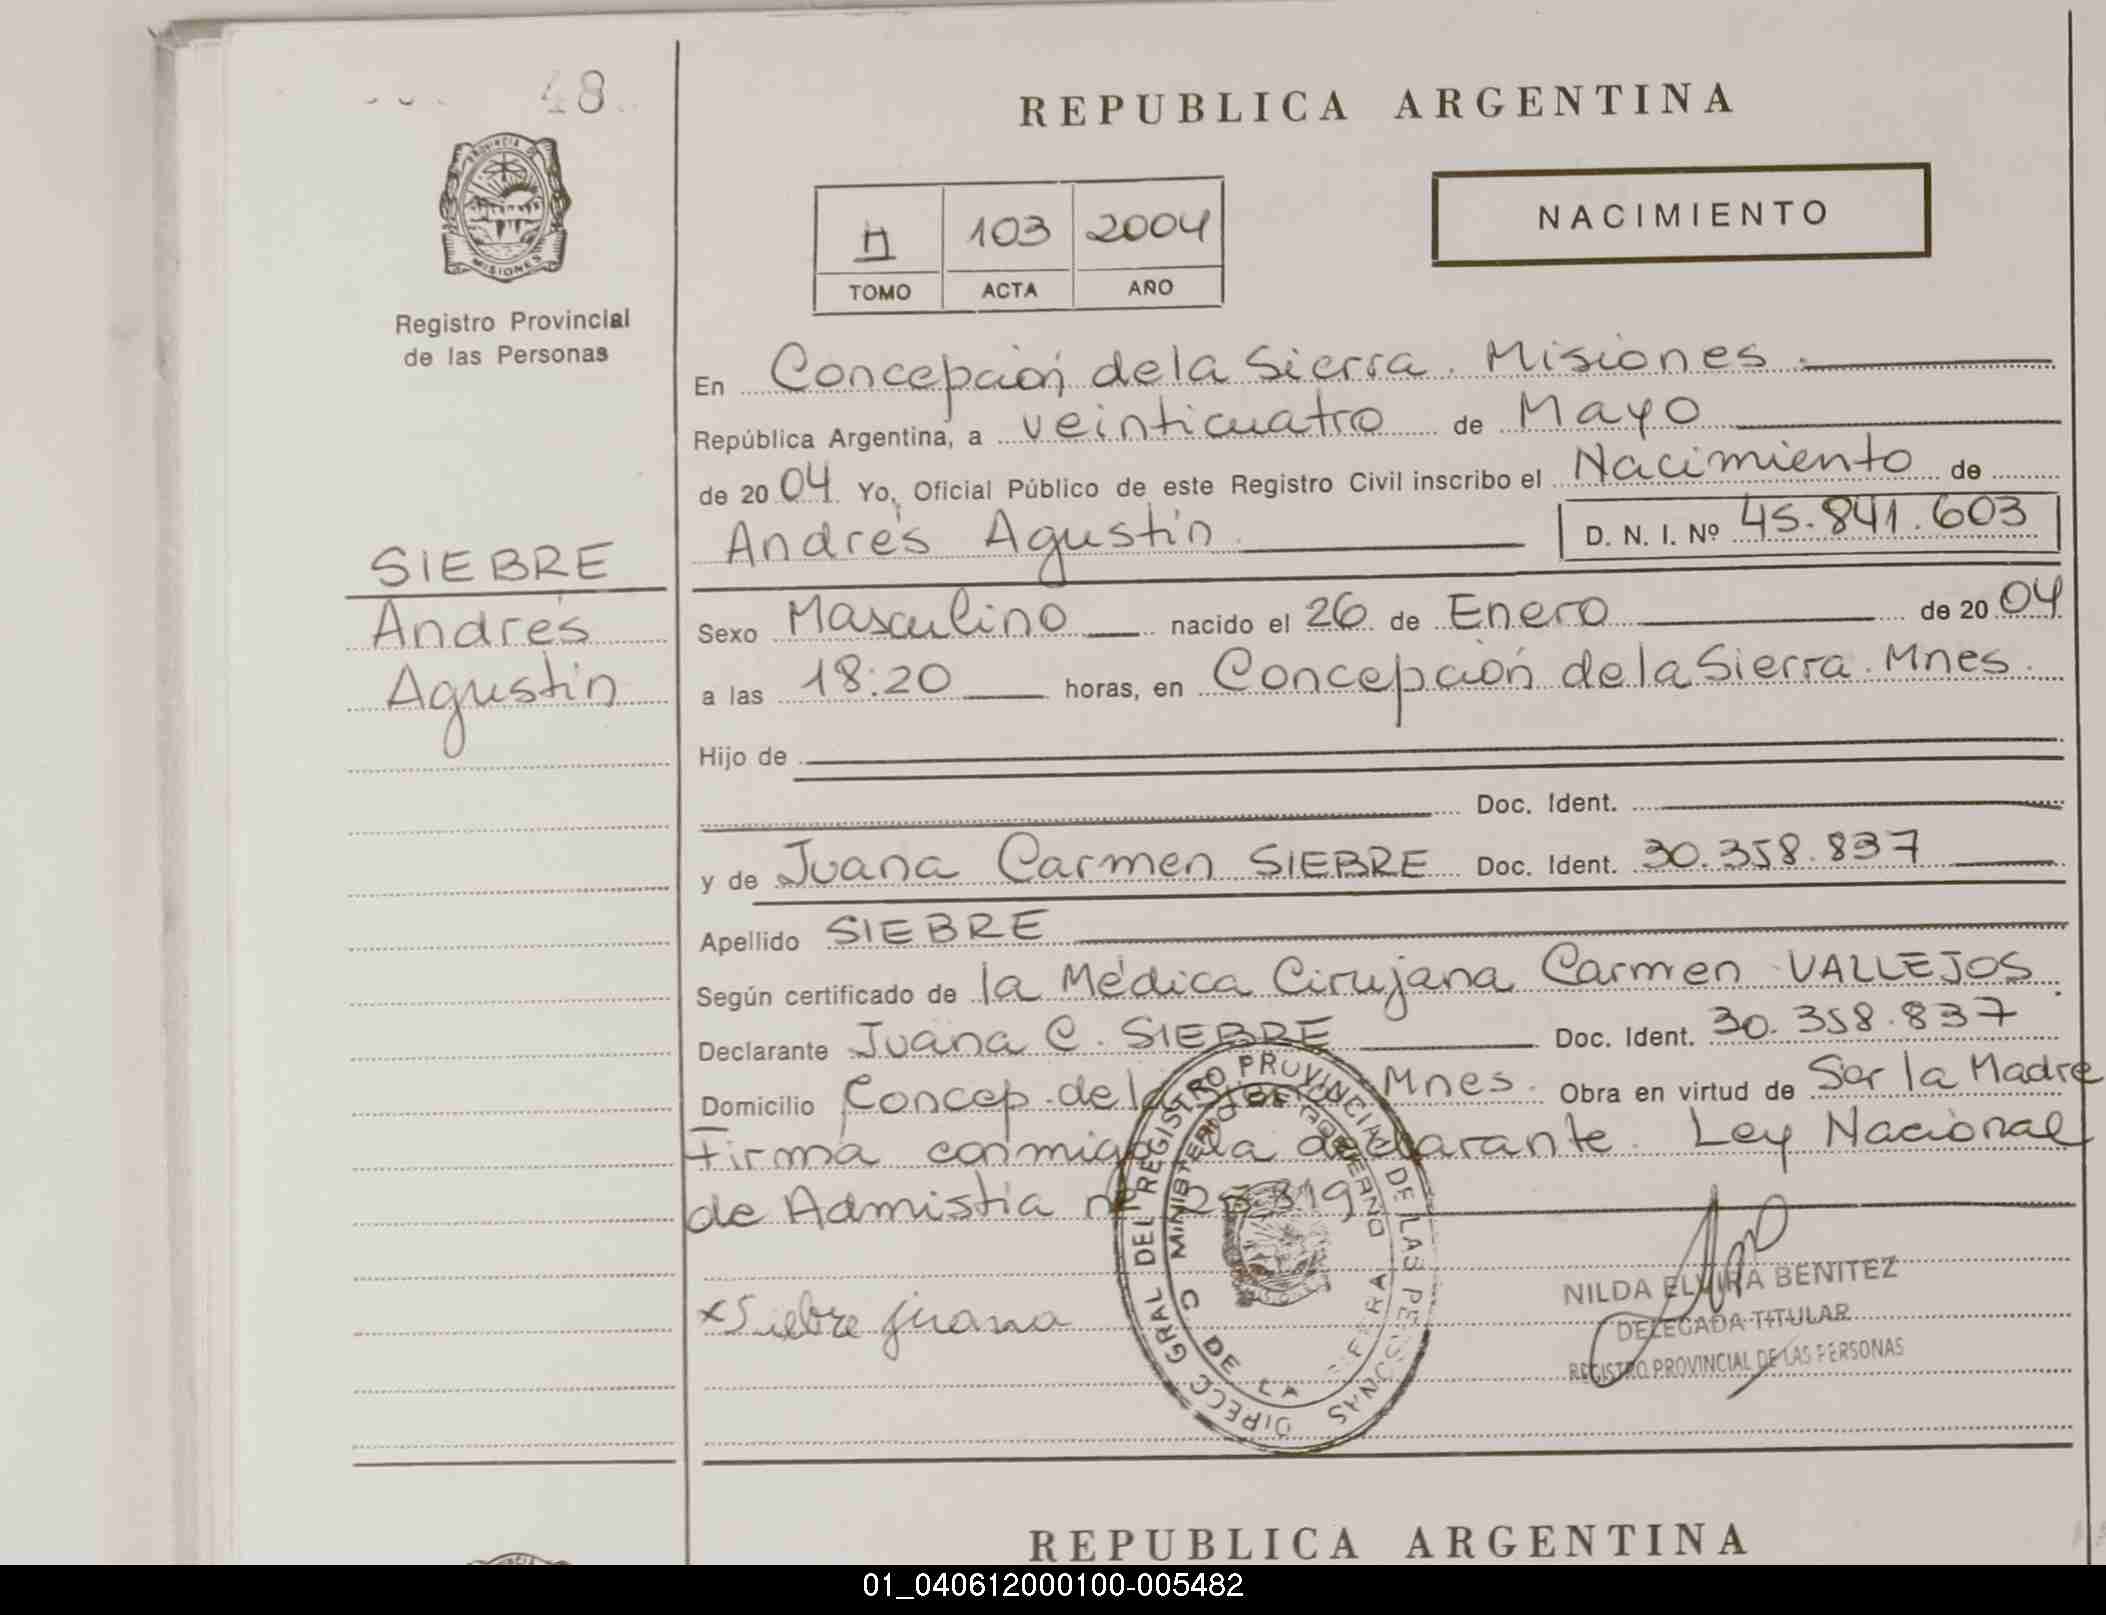 48
PROVINCIA DE
MISIONES
Registro Provincial
de las Personas
REPUBLICA ARGENTINA
II 103 2004
TOMO ACTA AÑO
NACIMIENTO
En Concepción de la Sierra. Misiones.
República Argentina, a veinticuatro de Mayo
de 2004 Yo, Oficial Público de este Registro Civil inscribo el Nacimiento de
Andrés Agustín
D. N. I. Nº 45.841.603
SIEBRE
Andrés
Agustín
Sexo Masculino nacido el 26 de Enero de 2004
a las 18:20 horas, en Concepción de la Sierra. Mnes.
Hijo de
Doc. Ident.
y de Juana Carmen SIEBRE Doc. Ident. 30.358.837
Apellido SIEBRE
Según certificado de la Médica Cirujana Carmen VALLEJOS.
Declarante Juana C. SIEBRE Doc. Ident. 30.358.837
Domicilio Concep. de la Sierra Mnes. Obra en virtud de Ser la Madre
Firma conmigo la declarante. Ley Nacional
de Admistia nº 25.819
DIRECC GRAL DEL REGISTRO PROVINCIAL DE LAS PERSONAS
MINISTERIO DE GOBIERNO
C DE LA SIERRA
x Siebre juana
NILDA ELVIRA BENITEZ
DELEGADA TITULAR
REGISTRO PROVINCIAL DE LAS PERSONAS
REPUBLICA ARGENTINA
01_040612000100-005482